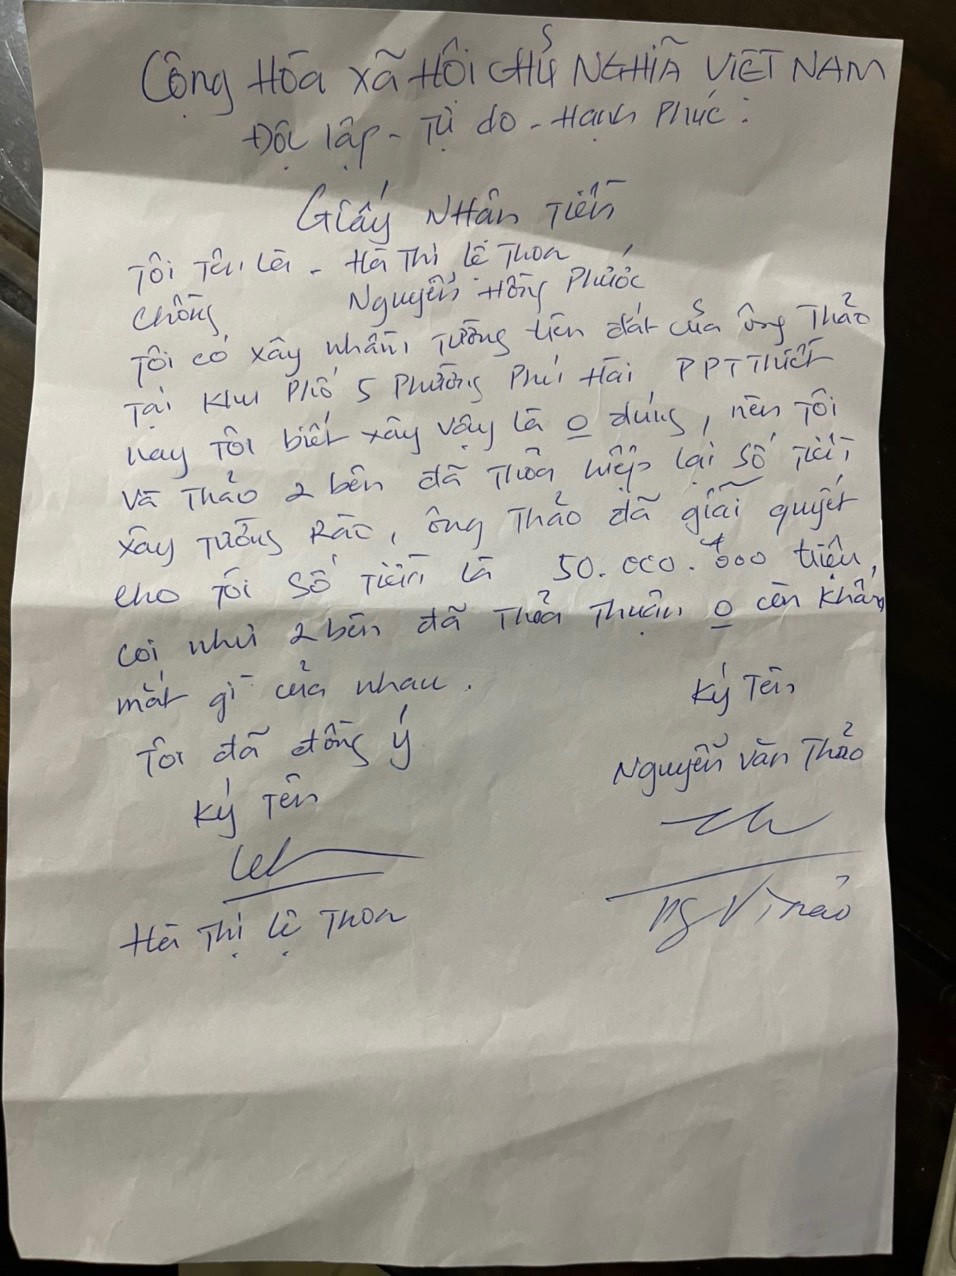 Cộng Hòa xã Hội chủ NGHĨA VIỆT NAM
Độc lập - Tự do - Hạnh Phúc :
Giấy NHận Tiền
Tôi Tên Là - Hà Thị Lệ Thoa
chồng Nguyễn Hồng Phước
Tôi có xây nhầm Tường trên đất của ông Thảo
Tại Khu Phố 5 Phường Phú Hài PPTThiết
nay Tôi biết xây vậy là o đúng, nên Tôi
Và Thảo 2 bên đã Thỏa hiệp lại số Tiền
xây Tường Rào, ông Thảo đã giải quyết
cho Tôi số Tiền là 50.000.000 triệu,
coi như 2 bên đã Thỏa Thuận o còn khấn
mắt gì của nhau.
Tôi đã đồng ý
Ký Tên
Ký Tên
Nguyễn văn Thảo
Hà Thị Lệ Thoa